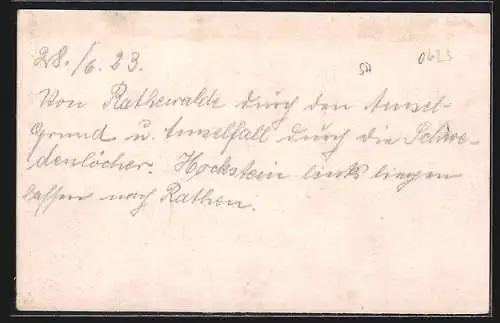 28./6.23. SA 0623
Von Rathewalde durch den Amsel-
Grund u. Amselfall durch die Schwe-
denlöcher. Hockstein links liegen
lassen nach Rathen.